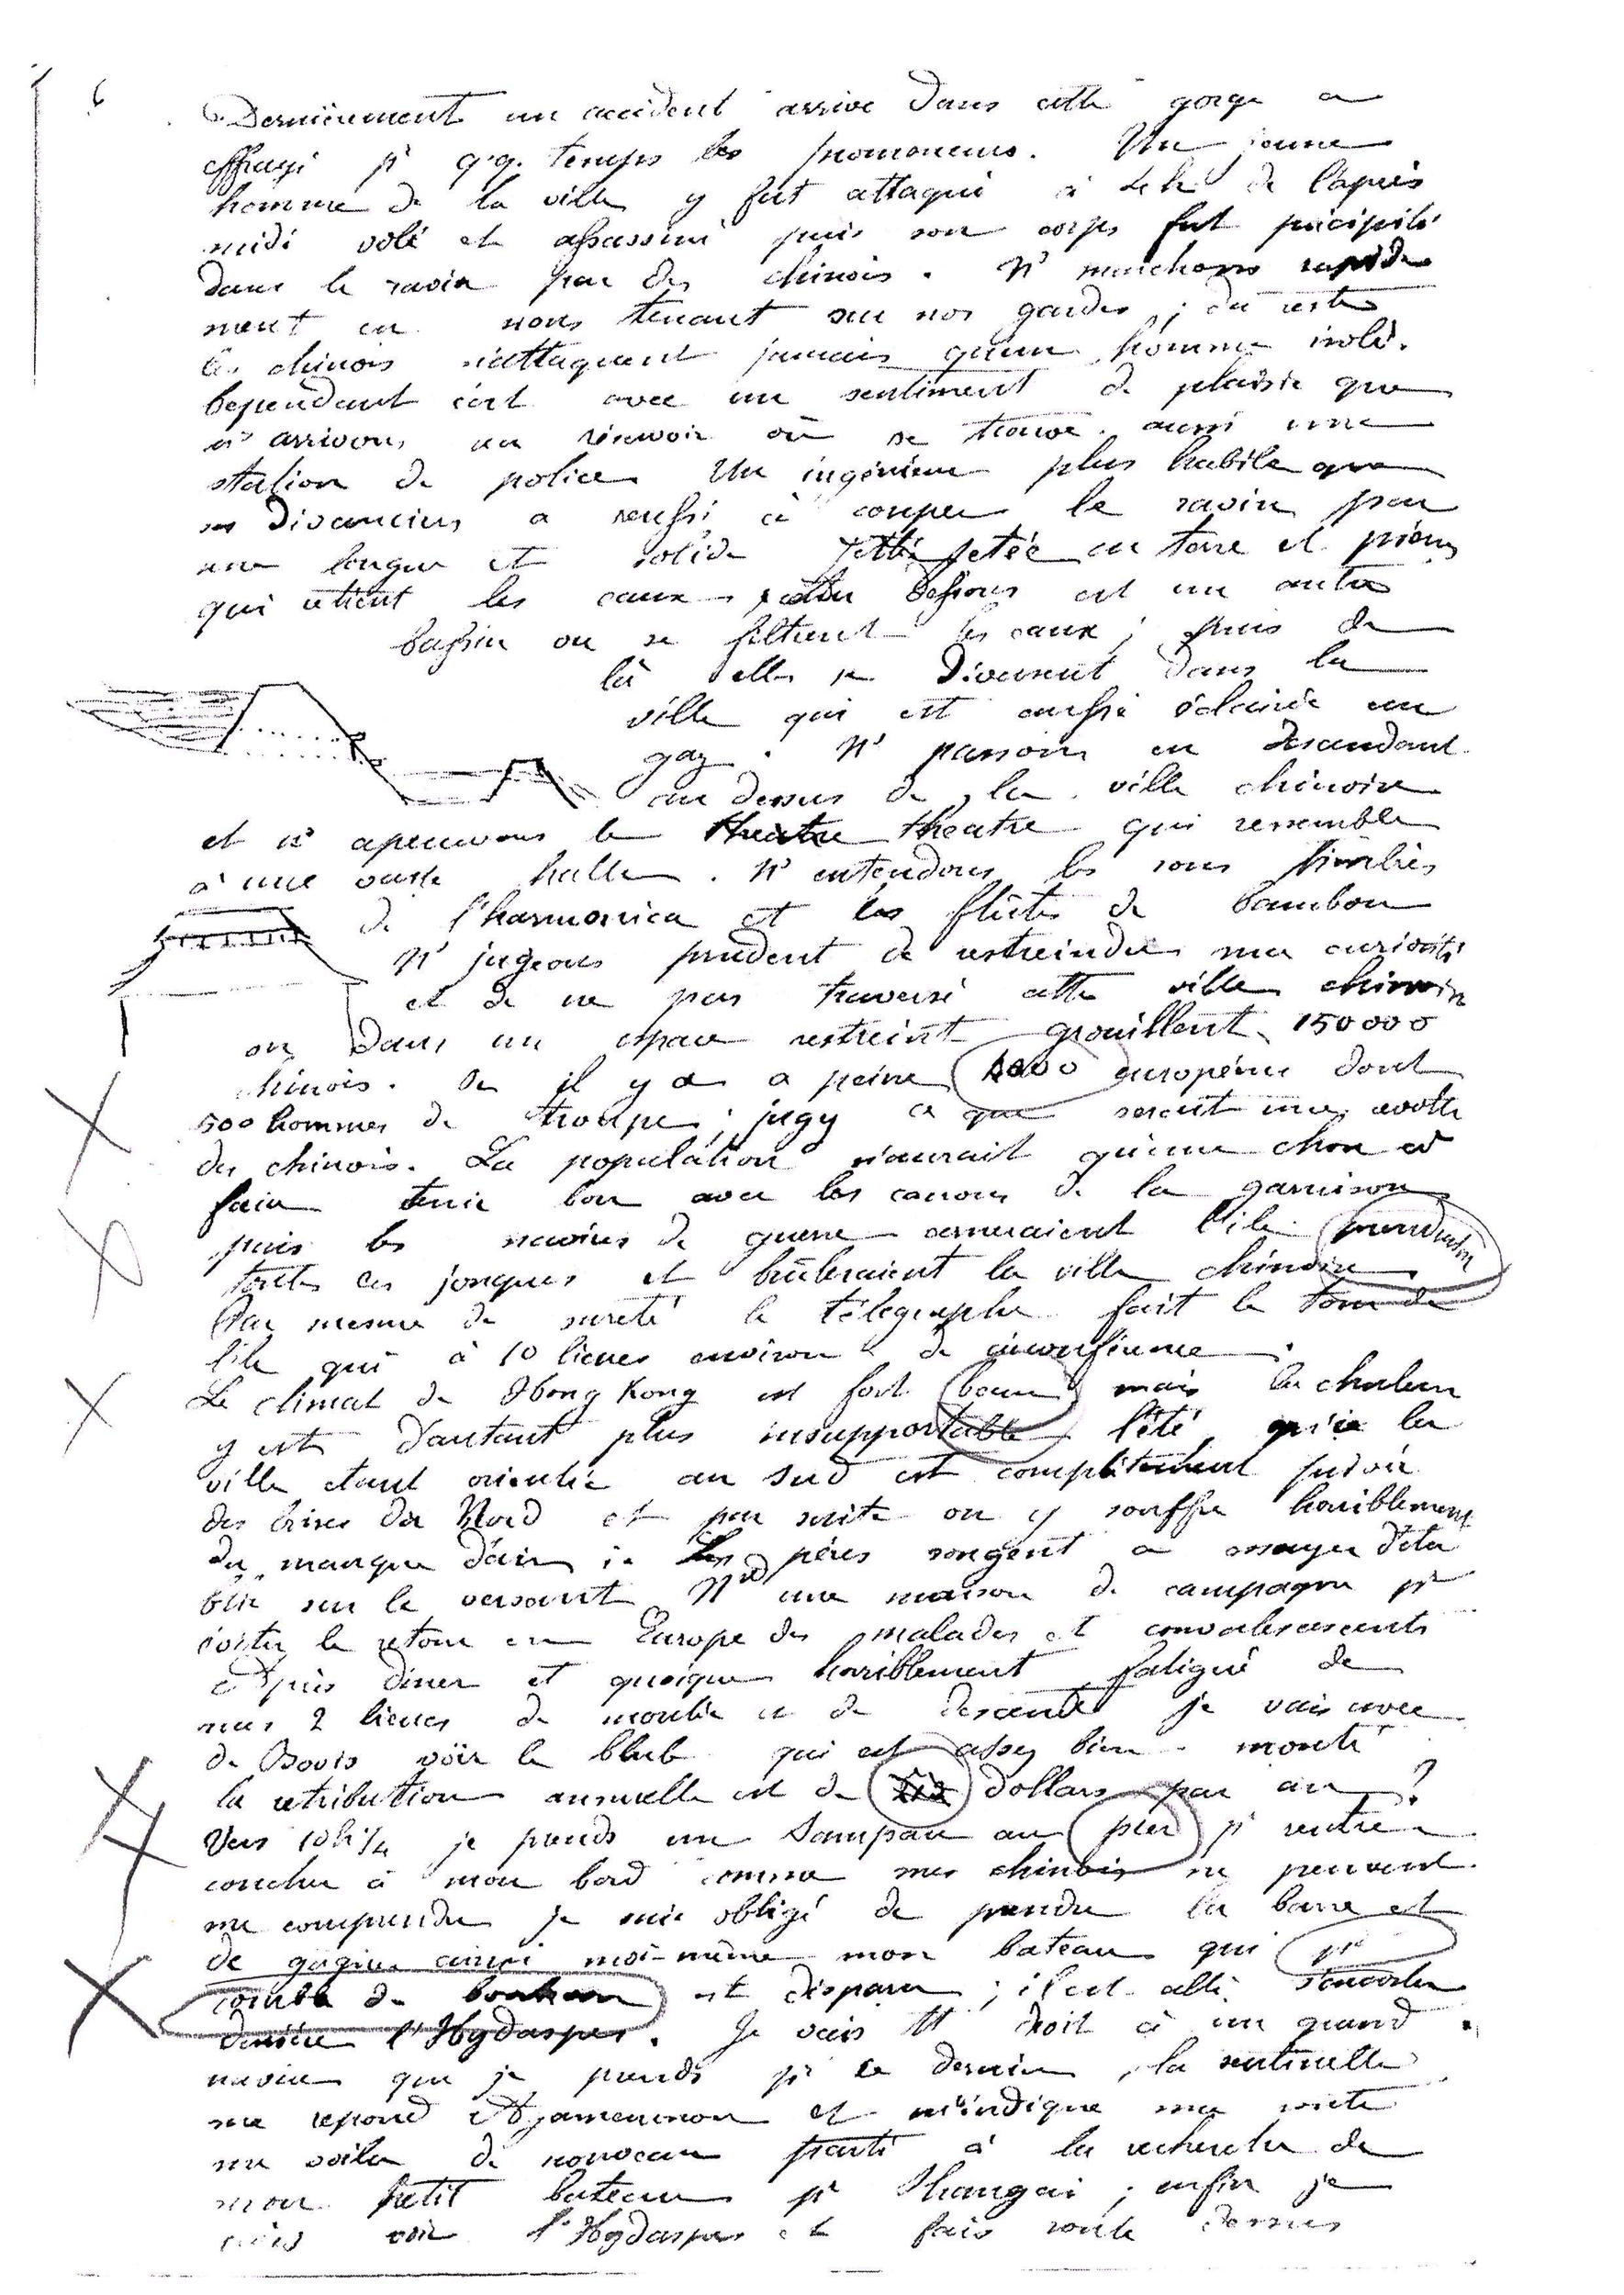 6
Dernièrement un accident arrivé dans cette gorge a
effrayé pr qq. temps les promeneurs. Un jeune
homme de la ville y fut attaqué à 4h de l'après
midi volé et assassiné puis son corps fut précipité
dans le ravin par des chinois. Ns marchons rapide
ment en nous tenant sur nos gardes ; du reste
les chinois n'attaquent jamais qu'un homme isolé.
Cependant c'est avec un sentiment de plaisir que
ns arrivons au réservoir où se trouve aussi une
station de police. Un ingénieur plus habile que
ses devanciers a reussi à couper le ravin par
une longue et solide jetée en terre et pierres
qui retient les eaux dessous est un autre
bassin ou se filtrent les eaux ; puis de
là elles se diversent dans la
ville qui est aussi éclairée au
gaz. Ns passons en descendant
au dessus de la ville chinoise
et ns apercevons le theatre theatre qui ressemble
à une vaste halle. Ns entendons les sons
de l'harmonica et les flûtes de bambou
Ns jugeons prudent de restreindre ma curiosité
et de ne pas traversé cette ville chinoise
ou dans un espace restreint grouillent 150000
chinois. Or il y a a peine européens dont
500 hommes de troupe ; jugez ce que serait une revolte
des chinois. La population n'aurait qu'une chose a
faire tenir bon avec les canons de la garnison
puis les navires de guerre cerneraient l'île prendraient
toutes ces jonques et brûleraient la ville chinoise
Par mesure de sureté le télégraphe fait le tour de
l'île qui à 10 lieues environ de circonference.
Le climat de Hong Kong est fort beau mais la chaleur
y est d'autant plus insupportable l'été que la
ville etant orientée au sud est complètement privée
des brises du Nord et par suite on y souffre horriblement
du manque d'air ; les pères songent a essayer d'éta
blir sur le versant Nd une maison de campagne pr
éviter le retour en Europe des malades et convalescents
Après diner et quoique horriblement fatigué de
mes 2 lieues de montée et de descente je vais avec
de Bovis voir le Club qui est assez bien monté
la retribution annuelle est de dollars par an ?
Vers 10h 1/4 je prends un Sampan au pier pr rentrer
coucher à mon bord comme mes chinois ne peuvent
me comprendre je suis obligé de prendre la barre et
de gagner ainsi moi-même mon bateau qui pr
comble de est disparu ; il est allé s'accoster
derrière l'Hydaspes. Je vais tt droit à un grand
navire que je prends pr ce dernier, la sentinelle
me repond Agamemnon et m'indique ma route
me voila de nouveau parti à la recherche de
mon petit bateau pr Shangai ; enfin je
crois voir l'Hydaspes et fais route dessus